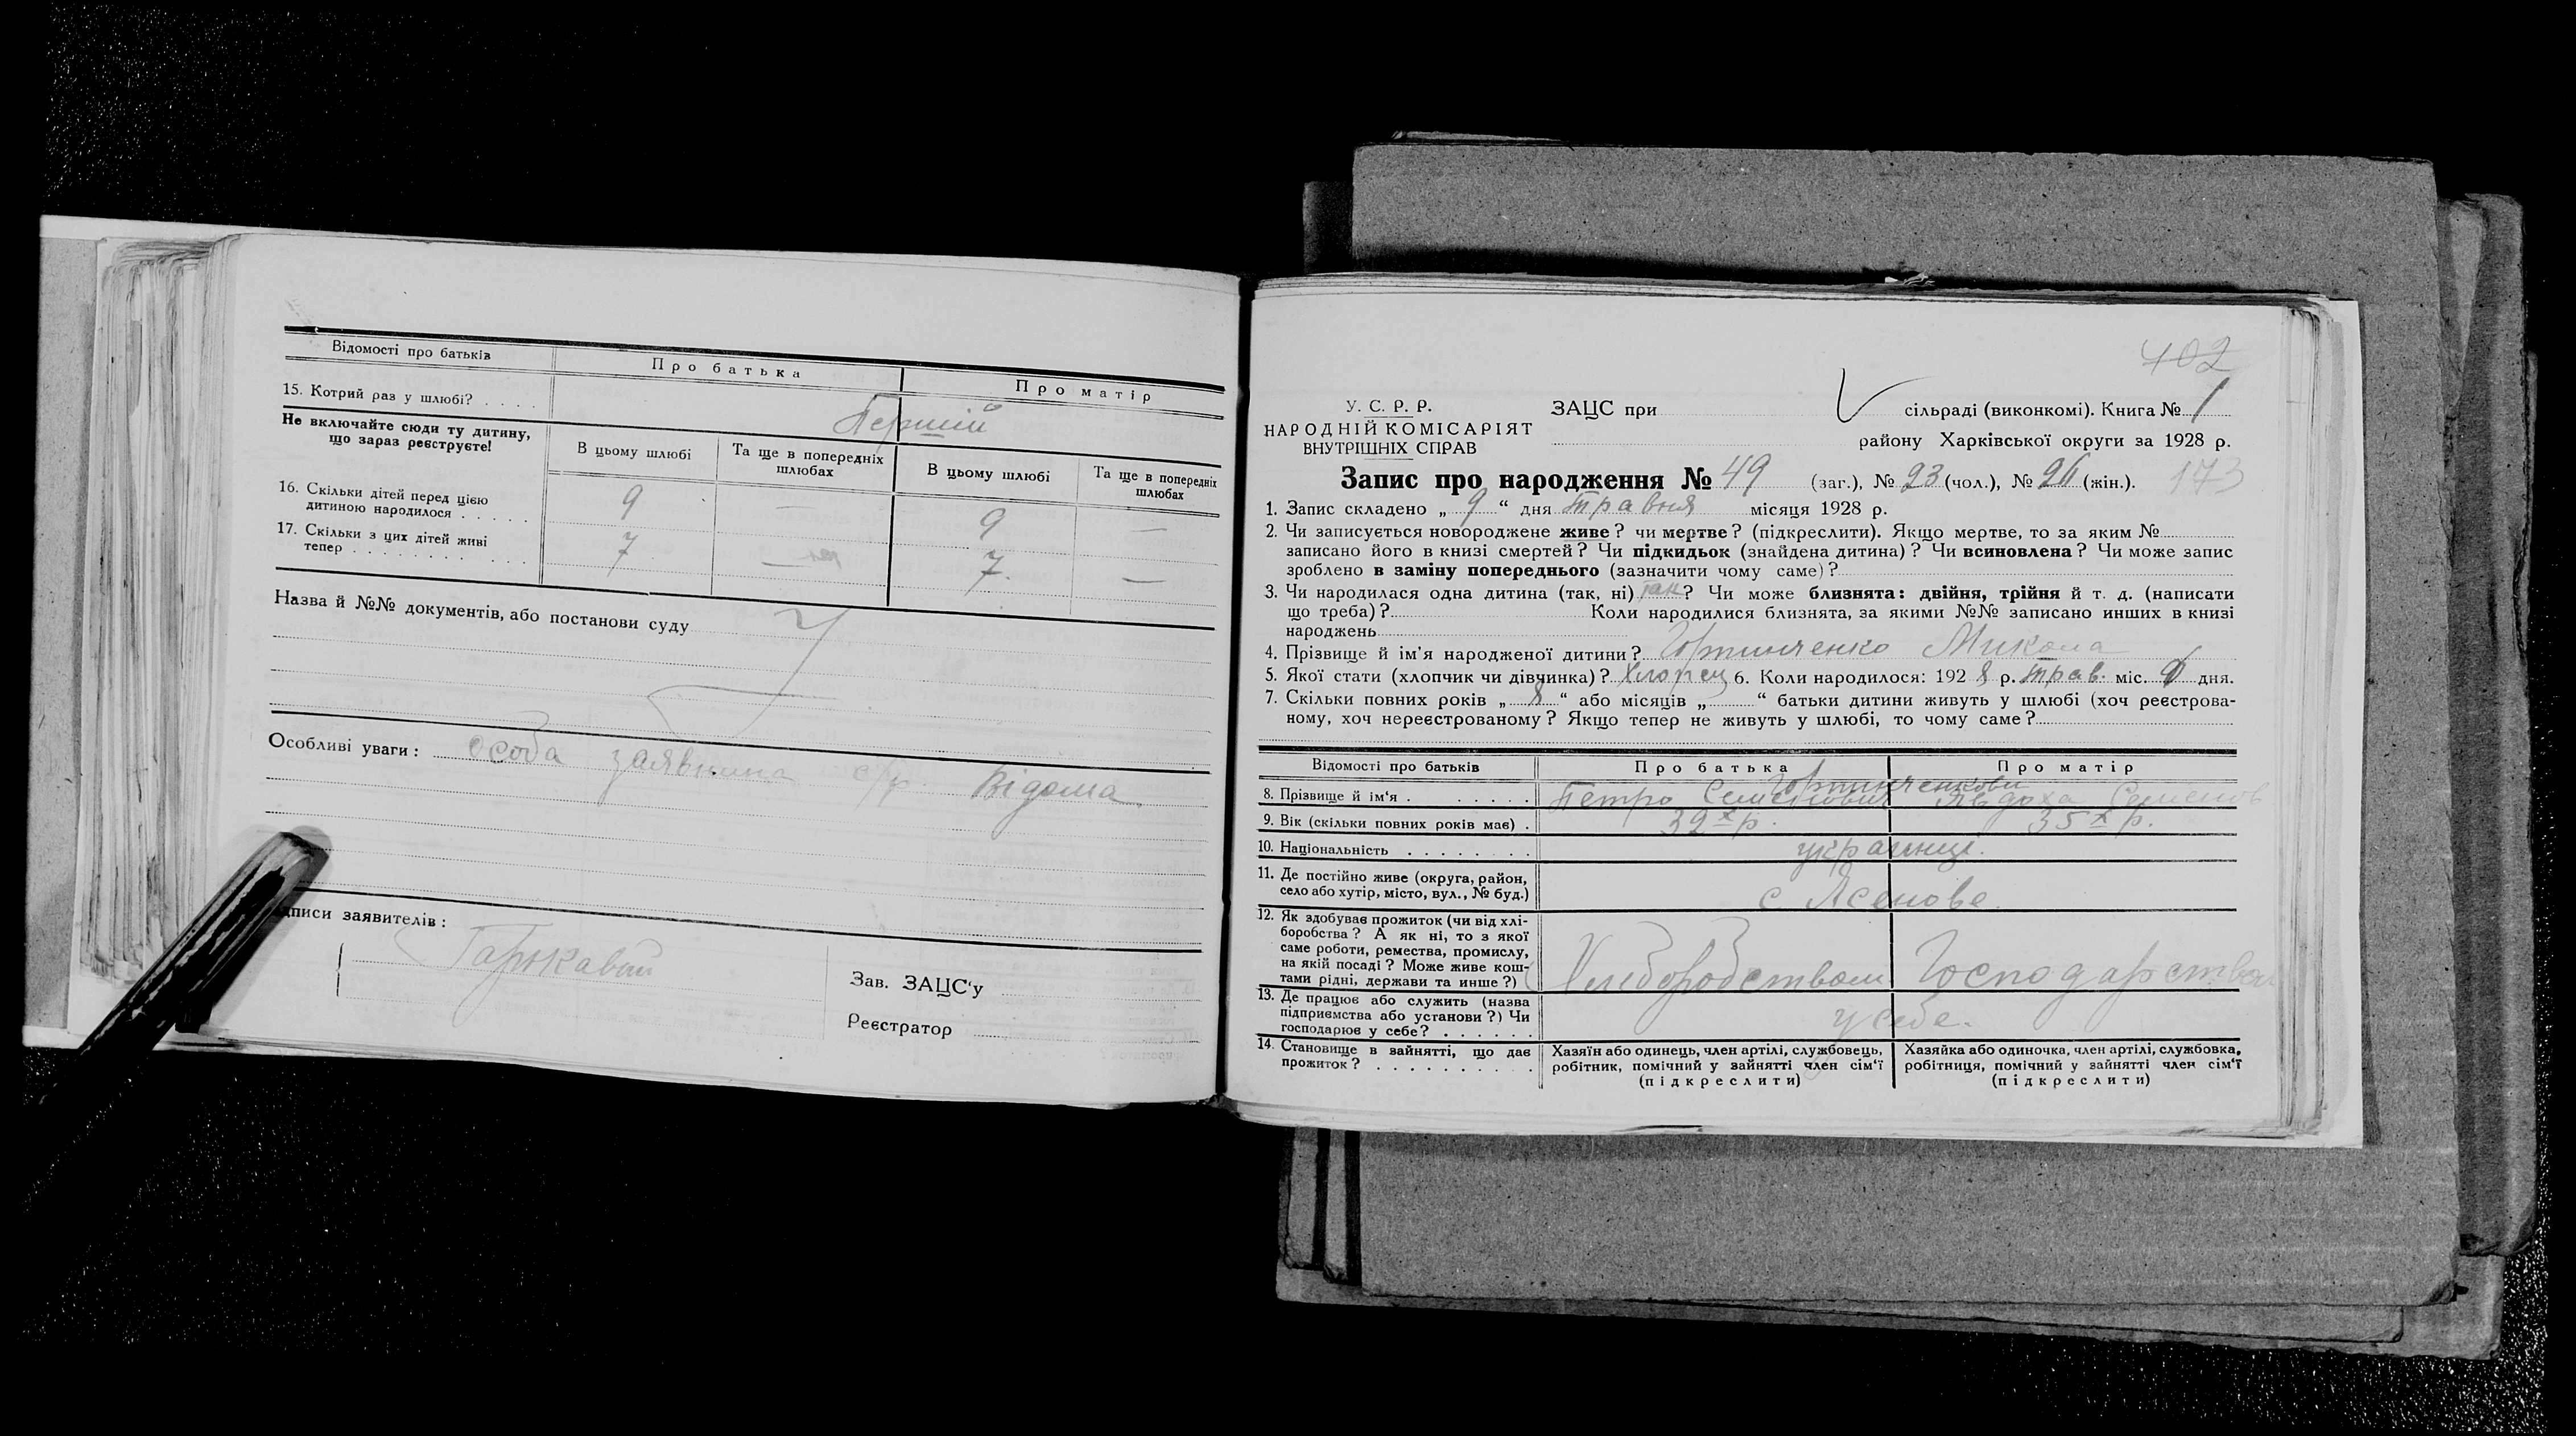 Відомості про батьків
Про батька
Про матір
15. Котрий раз у шлюбі?
Перший
Не включайте сюди ту дитину, що зараз реєструєте!
В цьому шлюбі
Та ще в попередніх шлюбах
В цьому шлюбі
Та ще в попередніх шлюбах
16. Скільки дітей перед цією дитиною народилося
9 — 9 —
17. Скільки з цих дітей живі тепер
7 — 7. —
Назва й №№ документів, або постанови суду
Особливі уваги: особа заявника с/р Відома
дписи заявителів:
Гаркавий
Зав. ЗАЦС'у
Реєстратор
402
У. С. Р. Р.
НАРОДНІЙ КОМІСАРІЯТ
ВНУТРІШНІХ СПРАВ
ЗАЦС при
сільраді (виконкомі). Книга № 1
району Харківської округи за 1928 р.
Запис про народження № 49 (заг.), № 23 (чол.), № 26 (жін.). 173
1. Запис складено „ 9 “ дня травня місяця 1928 р.
2. Чи записується новороджене живе? чи мертве? (підкреслити). Якщо мертве, то за яким №
записано його в книзі смертей? Чи підкидьок (знайдена дитина)? Чи всиновлена? Чи може запис
зроблено в заміну попереднього (зазначити чому саме)?
3. Чи народилася одна дитина (так, ні) так? Чи може близнята: двійня, трійня й т. д. (написати
що треба)? Коли народилися близнята, за якими №№ записано инших в книзі
народжень
4. Прізвище й ім'я народженої дитини? Микола
5. Якої стати (хлопчик чи дівчинка)? Хлопец 6. Коли народилося: 192 8 р. трав. міс. дня.
7. Скільки повних років „ 8 “ або місяців „ “ батьки дитини живуть у шлюбі (хоч реєстрова-
ному, хоч нереєстрованому? Якщо тепер не живуть у шлюбі, то чому саме?
Відомості про батьків
Про батька
Про матір
8. Прізвище й ім'я
Петро Семенович
Явдоха Семенов
9. Вік (скільки повних років має)
39 х р.
35 х р.
10. Національність
українці.
11. Де постійно живе (округа, район,
село або хутір, місто, вул., № буд.)
с Ясенове.
12. Як здобуває прожиток (чи від хлі-
боробства? А як ні, то з якої
саме роботи, ремества, промислу,
на якій посаді? Може живе кош-
тами рідні, держави та инше?)
Хліборобством
Господарством
13. Де працює або служить (назва
підприємства або установи?) Чи
господарює у себе?
у себе.
14. Становище в зайнятті, що дає
прожиток?
Хазяїн або одинець, член артілі, службовець,
робітник, помічний у зайнятті член сім'ї
(підкреслити)
Хазяйка або одиночка, член артілі, службовка,
робітниця, помічний у зайнятті член сім'ї
(підкреслити)